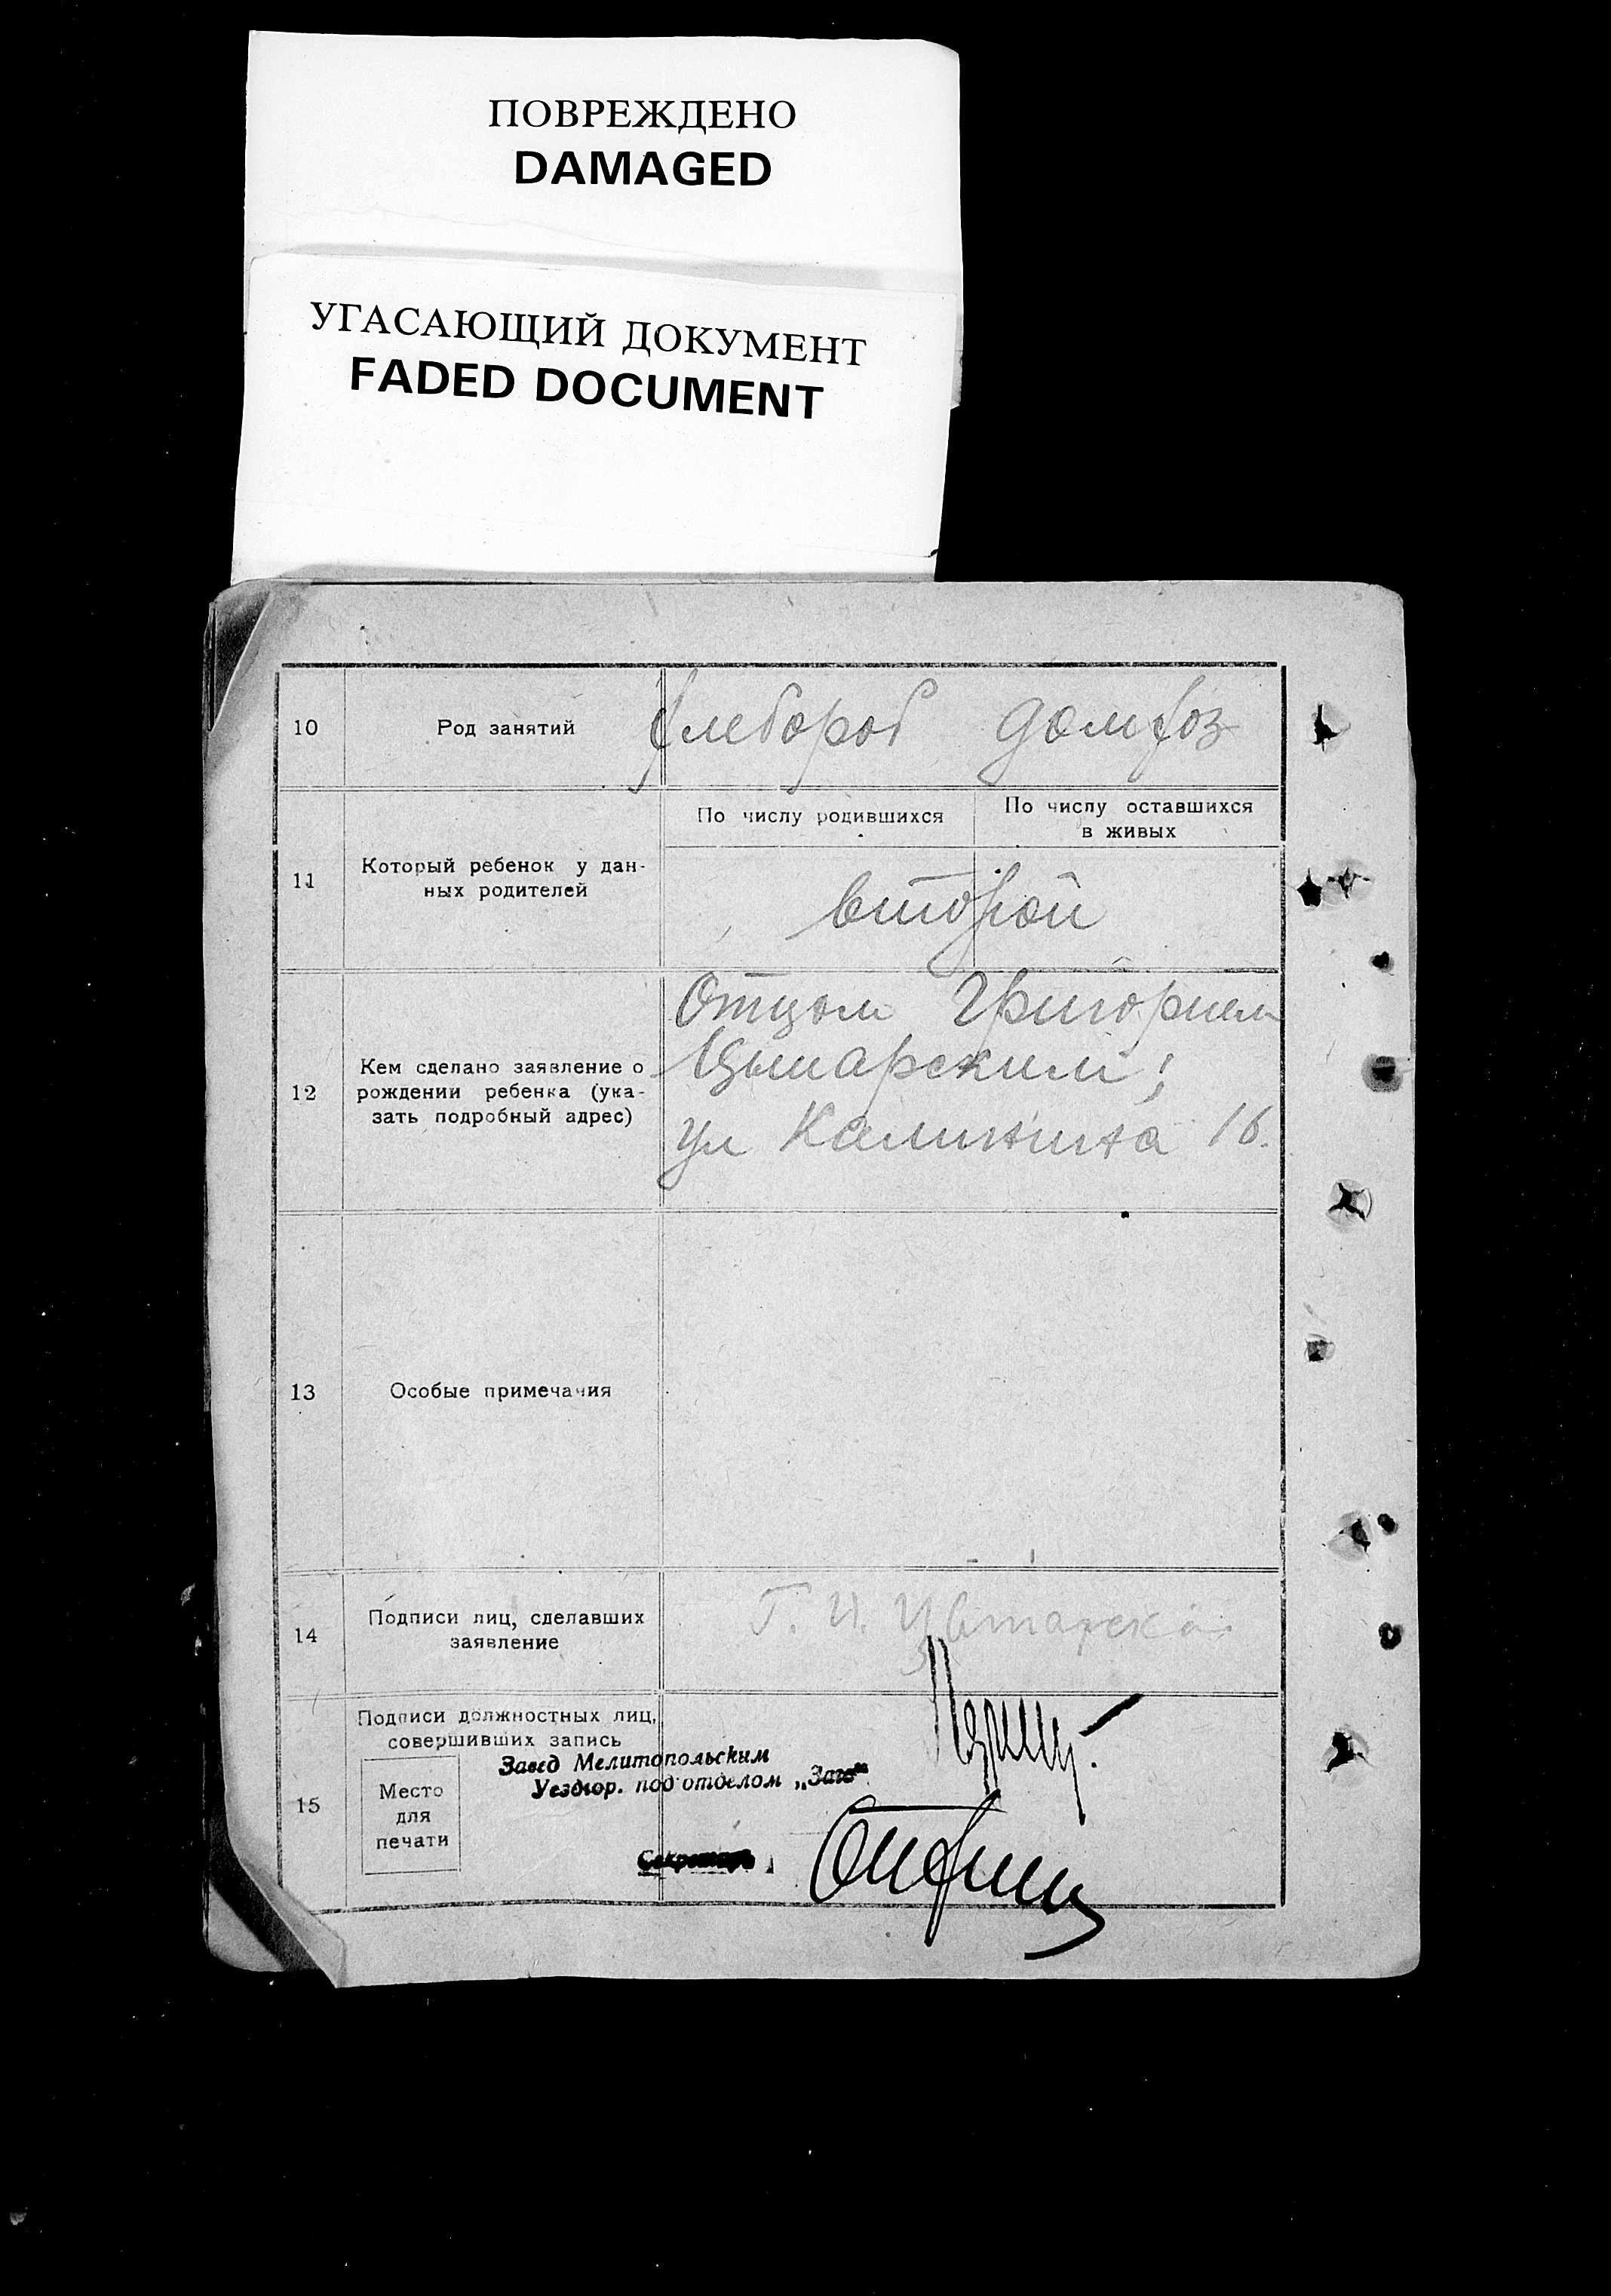 ПОВРЕЖДЕНО
DAMAGED
УГАСАЮЩИЙ ДОКУМЕНТ
FADED DOCUMENT
10 Род занятий хлебороб домхоз
По числу родившихся По числу оставшихся
в живых
11 Который ребенок у дан-
ных родителей
второй
12 Кем сделано заявление о
рождении ребенка (ука-
зать подробный адрес)
Отцом Григорием
Цытарским;
ул Калинина 16.
13 Особые примечания
14 Подписи лиц, сделавших
заявление
Г. И. Цытарский
15 Подписи должностных лиц,
совершивших запись
Место
для
печати
Завед Мелитопольским
Уездгор. под отделом „Загс"
Секретарь